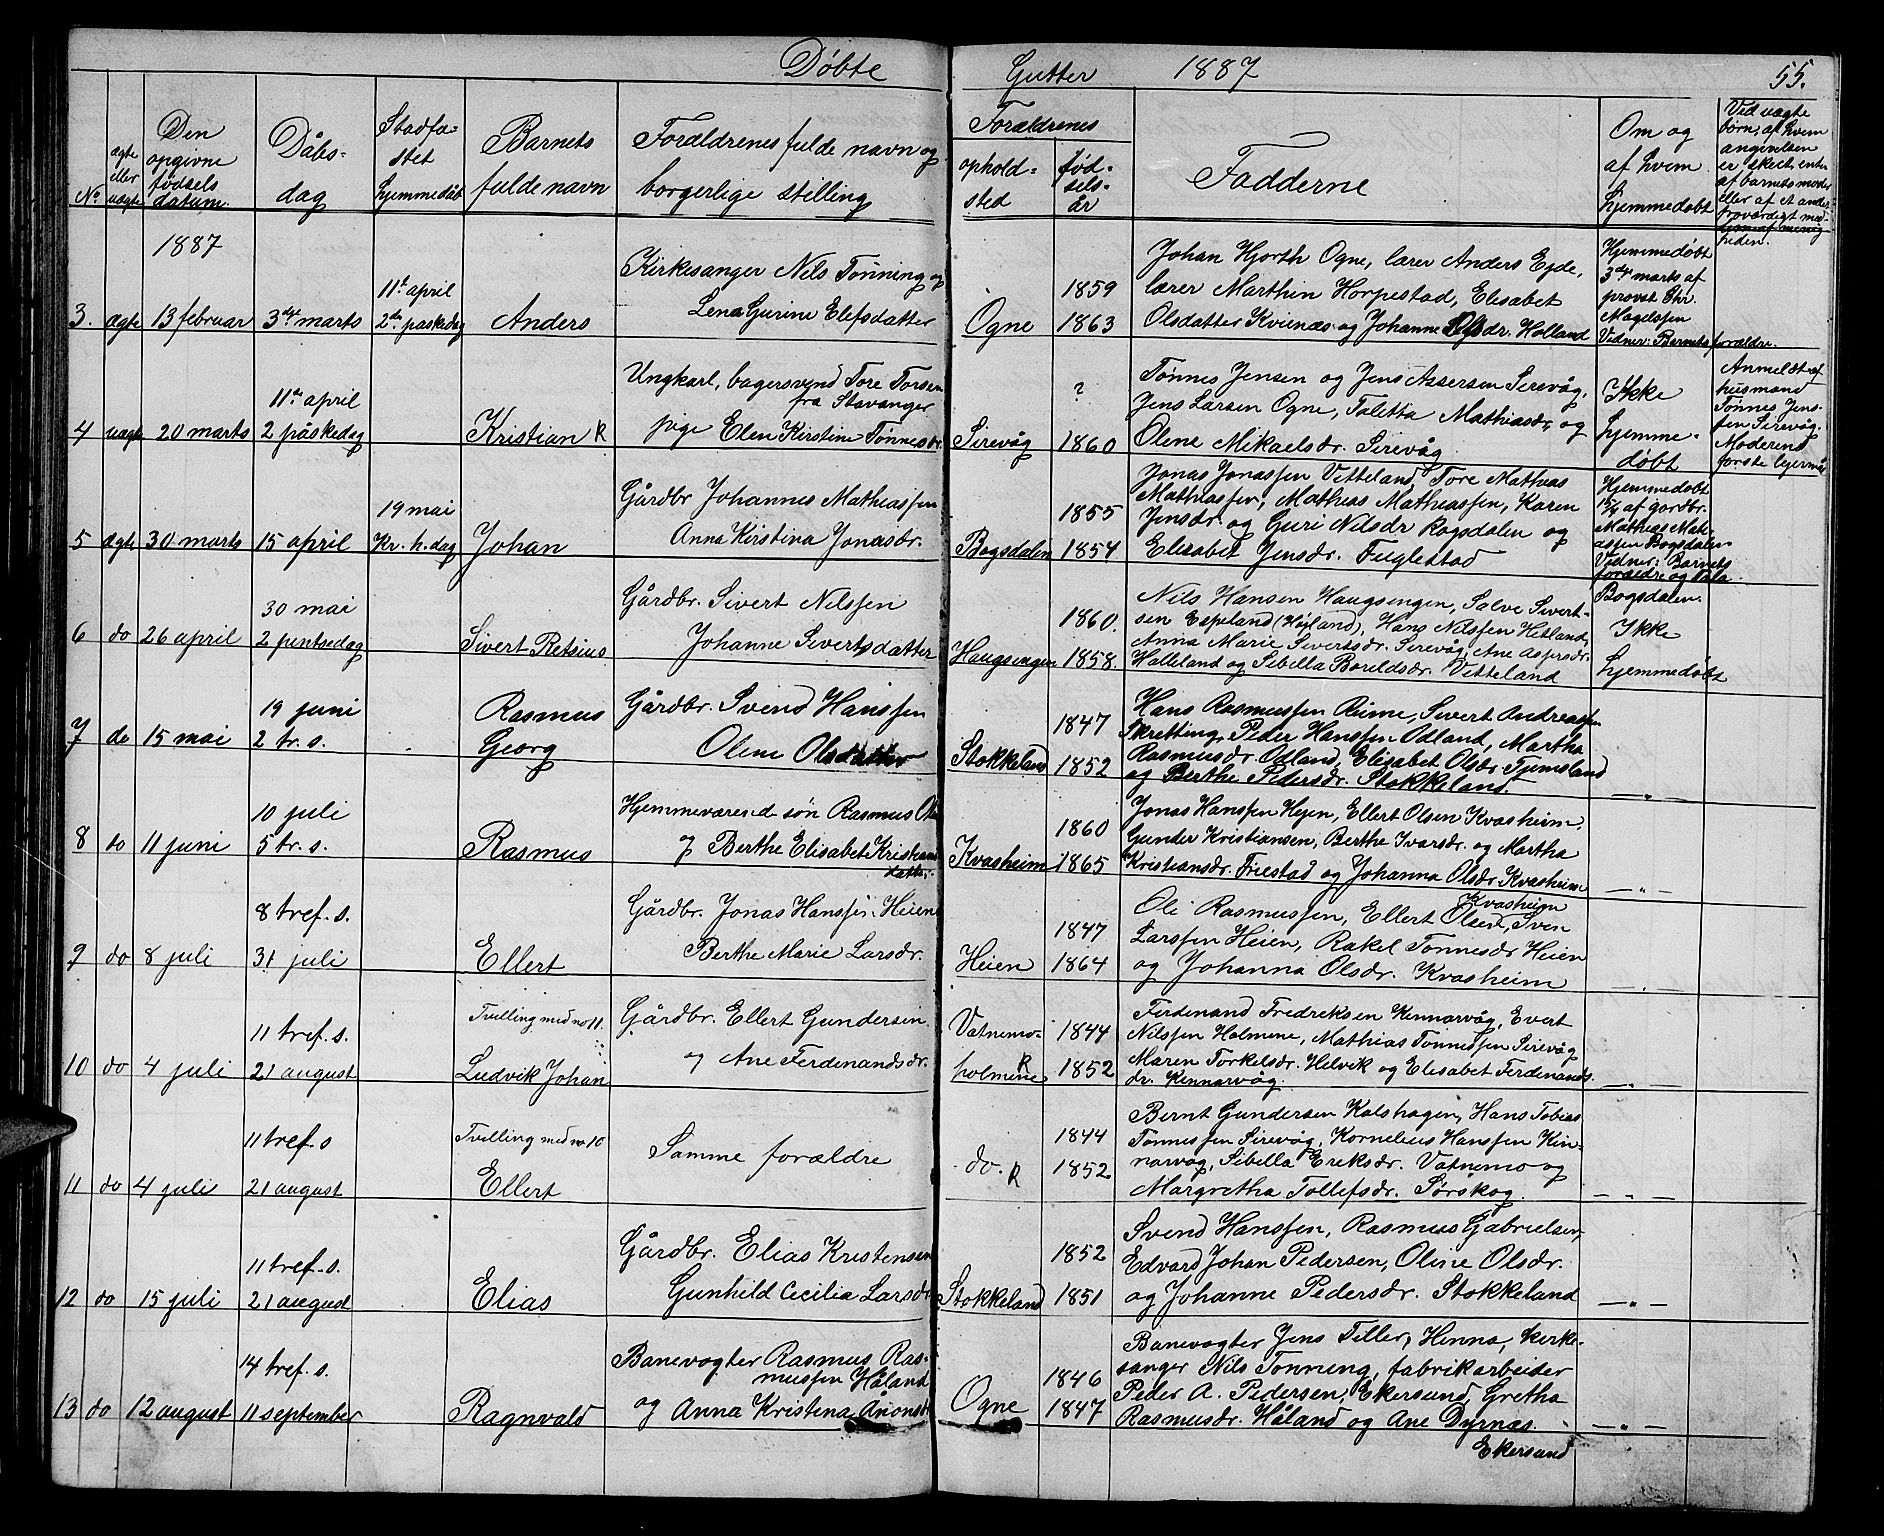 Døbte Gutter 1887 55.
No
ægte eller uægte
Den opgivne fødsels datum.
Dåbs-dag
Stadfæ-stet hjemmedåb
Barnets fulde navn
Forældrenes fulde navn og borgerlige stilling
Forældrenes
ophold-sted
fød-sels-år
Fadderne
Om og af hvem hjemmedøbt
Ved uægte
børn, af hvem
angivelsen
er skeet, enten
af barnets moder
eller af et andet
troværdigt med-
lem af menig
heden.
1887
3. ægte 13 februar 3die marts
11te april
2den påskedag
Anders
Kirkesanger Nils Tønning og
Lena Gurine Elefsdatter
Ogne
1859
1863
Johan Hjorth Ogne, lærer Anders Eyde,
lærer Marthin Horpestad, Elisabet
Olsdatter Kvienæs og Johanne Olsdr. Holland
Hjemmedøbt
3die marts af
provst Chr.
Magelssen
Vidner: Barnets forældre.
4 uægte 20 marts
11te april
2 påskedag
Kristian R
Ungkarl, bagersvend Tore Torsen
fra Stavanger
pige Elen Kirstine Tønnesdr.
Sirevåg
?
1860
Tønnes Jensen og Jens Assersen Sirevåg,
Jens Larsen Ogne, Taletta Mathiasdr. og
Olene Mikaelsdr. Sirevåg
Ikke
hjemme-
døbt
Anmeldt af
husmand
Tønnes Jens-
sen Sirevåg.
Moderens
første lejermål
5 ægte 30 marts 15 april
19 mai
Kr. h. dag
Johan
Gårdbr Johannes Mathiassen
Anna Kirstina Jonasdr.
Bogsdalen
1855
1854
Jonas Jonassen Vetteland, Tore Mathias
Mathiassen, Mathias Mathiassen, Karen
Jensdr. og Guri Nilsdr Bogsdalen og
Elisabet Jensdr. Fuglestad
Hjemmedøbt
15/4 af gårdbr.
Mathias Mat-
assen Bogsdalen
Vidner: Barnets
forældre og
Bogsdalen.
6 do 26 april
30 mai
2 pintsedag
Sivert Retsius
Gårdbr. Sivert Nilssen
Johanne Sivertsdatter
Haugsengen
1860.
1858.
Nils Hansen Haugsengen, Salve Sivert-
sen Espeland (Højland), Hans Nilssen Hetland,
Anna Marie Sivertsdr. Sirevåg, Ane Aspersdr.
Halleland og Sibella Boreldsdr. Vetteland
Ikke
hjemmedøbt
7 do 15 mai
19 juni
2 tr. s.
Rasmus
Georg
Gårdbr. Svend Hanssen
Oline Olsdatter
Stokkeland
1847
1852
Hans Rasmussen Rime, Sivert Andreassen
Skretting, Peder Hanssen Odland, Martha
Rasmusdr. Odland, Elisabet Olsdr. Tjemsland
og Berthe Pedersdr. Stokkeland.
— „ —
8 do 11 juni
10 juli
5 tr. s.
Rasmus
Hjemmeværend søn Rasmus Ols
og Berthe Elisabet Kristians
datter.
Kvasheim
1860
1865
Jonas Hanssen Hejen, Ellert Olsen Kvasheim,
Gunder Kristiansen, Berthe Ivarsdr. og Martha
Kristiansdr. Friestad og Johanna Olsdr. Kvasheim
— „ —
9 do 8 juli
8 tref. s.
31 juli
Ellert
Gårdbr. Jonas Hanssen Heien
Berthe Marie Larsdr.
Heien
1847
1864
Kvasheim
Ole Rasmussen, Ellert Olsen, Sven
Larssen Heien, Rakel Tønnesdr Heien
og Johanna Olsdr. Kvasheim
— „ —
10 do 4 juli
11 tref. s.
21 august
Tvilling med no 11.
Ludvik Johan
Gårdbr. Ellert Gundersen
og Ane Ferdinandsdr.
Vatnemo-
holmene R
1844
1852
Ferdinand Fredreksen Kennarvåg, Evert
Nilssen Holmene, Mathias Tønnessen Sirevåg
Maren Torkelsdr. Helvik og Elisabet Ferdinands
dr. Kennarvåg.
— „ —
11 do 4 juli
11 tref. s
21 august
Tvilling med no 10
Ellert
Samme forældre
do. R
1844
1852
Bernt Gundersen Kalshagen, Hans Tobias
Tønnessen Sirevåg, Kornelius Hanssen Kin-
narvåg, Sibella Ereksdr. Vatnemo og
Margretha Tollefsdr. Sørskog.
— „ —
12 do 15 juli
11 tref. s.
21 august
Elias
Gårdbr. Elias Kristensen
Gunhild Cecilia Larsdr
Stokkeland
1852
1851
Svend Hanssen, Rasmus Gabrielsen,
Edvard Johan Pedersen, Oline Olsdr.
og Johanne Pedersdr. Stokkeland
— „ —
13 do 12 august
14 tref. s.
11 september
Ragnvald
Banevogter Rasmus Ras-
mussen Håland
og Anna Kristina Anonsdr
Ogne
1846
1847
Banevogter Jens Teller, Hinna, kirke-
sanger Nils Tønning, fabrikarbeider
Peder A. Pedersen, Ekersund, Gretha
Rasmusdr. Håland og Ane Dyrnæs.
Ekersund
— „ —